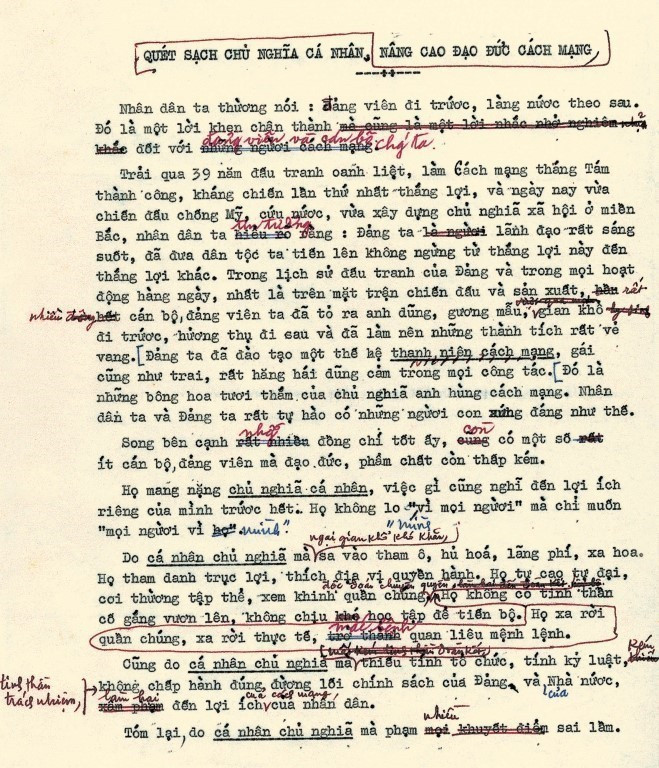 QUÉT SẠCH CHỦ NGHĨA CÁ NHÂN, NÂNG CAO ĐẠO ĐỨC CÁCH MẠNG,
Nhân dân ta thường nói : đảng viên đi trước, làng nước theo sau.
Đó là một lời khen chân thành mà cũng là một lời nhắc nhở nghiêm
đảng viên và cán bộ chúng ta.
khắc đối với những người cách mạng.
Trải qua 39 năm đấu tranh oanh liệt, làm Cách mạng tháng Tám
thành công, kháng chiến lần thứ nhất thắng lợi, và ngày nay vừa
chiến đấu chống Mỹ, cứu nước, vừa xây dựng chủ nghĩa xã hội ở miền
tin tưởng
Bắc, nhân dân ta hiểu rõ rằng : Đảng ta là người lãnh đạo rất sáng
suốt, đã đưa dân tộc ta tiến lên không ngừng từ thắng lợi này đến
thắng lợi khác. Trong lịch sử đấu tranh của Đảng và trong mọi hoạt
động hàng ngày, nhất là trên mặt trận chiến đấu và sản xuất, hầu rất
nhiều hết cán bộ, đảng viên ta đã tỏ ra anh dũng, gương mẫu, gian khổ
đi trước, hưởng thụ đi sau và đã làm nên những thành tích rất vẻ
vang. [Đảng ta đã đào tạo một thế hệ thanh niên cách mạng, gái
cũng như trai, rất hăng hái dũng cảm trong mọi công tác. [Đó là
những bông hoa tươi thắm của chủ nghĩa anh hùng cách mạng. Nhân
dân ta và Đảng ta rất tự hào có những người con xứng đáng như thế.
những còn
Song bên cạnh rất nhiều đồng chí tốt ấy, cũng có một số rất
ít cán bộ, đảng viên mà đạo đức, phẩm chất còn thấp kém.
Họ mang nặng chủ nghĩa cá nhân, việc gì cũng nghĩ đến lợi ích
riêng của mình trước hết. Họ không lo "vì mọi người" mà chỉ muốn
"mọi người vì họ" mình". "mình
ngại gian khổ khó khăn,
Do cá nhân chủ nghĩa mà sa vào tham ô, hủ hoá, lãng phí, xa hoa.
Họ tham danh trục lợi, thích địa vị quyền hành. Họ tự cao tự đại,
độc đoán chuyên quyền
coi thường tập thể, xem khinh quần chúng, Họ không có tinh thần
cố gắng vươn lên, không chịu khó học tập để tiến bộ. Họ xa rời
mắc bệnh
quần chúng, xa rời thực tế, trở thành quan liêu mệnh lệnh.
mất tinh thần đoàn kết,
Cũng do cá nhân chủ nghĩa mà thiếu tính tổ chức, tính kỷ luật, kém
tinh thần trách nhiệm, không chấp hành đúng đường lối chính sách của Đảng và của Nhà nước,
làm hại của cách mạng,
xâm phạm đến lợi ích của nhân dân.
nhiều
Tóm lại, do cá nhân chủ nghĩa mà phạm mọi khuyết điểm sai lầm.